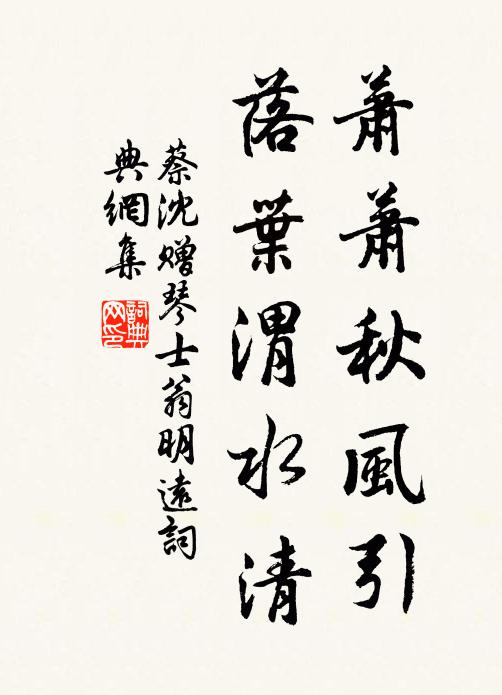 蕭蕭秋風引
落葉渭水清
蔡沈贈琴士翁明遠詞
典網集
詞典
网印